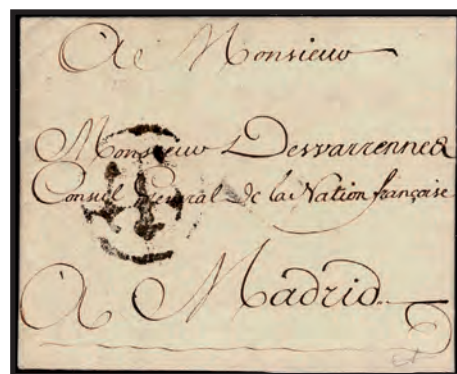 A Monsieur
Monsieur Desvarrennes
Consul General de la Nation françoise
A Madrid